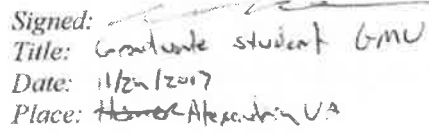 Signed:
Title: Graduate student GMU
Date: 11/20/2017
Place: Alexandria VA